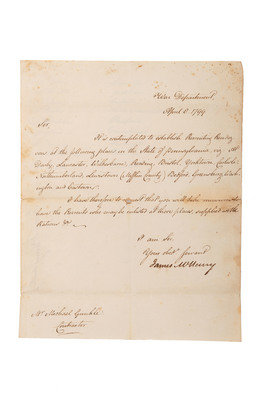 War Department,
April 2. 1799
Sir,
It is contemplated to establish Recruiting Rendez
vous at the following places in the State of Pennsylvania viz. at
Darby, Lancaster, Wilkesbarre, Reading, Bristol, Yorktown, Carlisle,
Northumberland, Lewistown (Mifflin County) Bedford, Greensburg, Wash
ington and Easton.
I have therefore to request that you will take measures to
have the Recruits who may be enlisted at these places, supplied with
Rations &c
I am Sir
Your obt. servant
James McHenry
Mr. Michael
Contractor